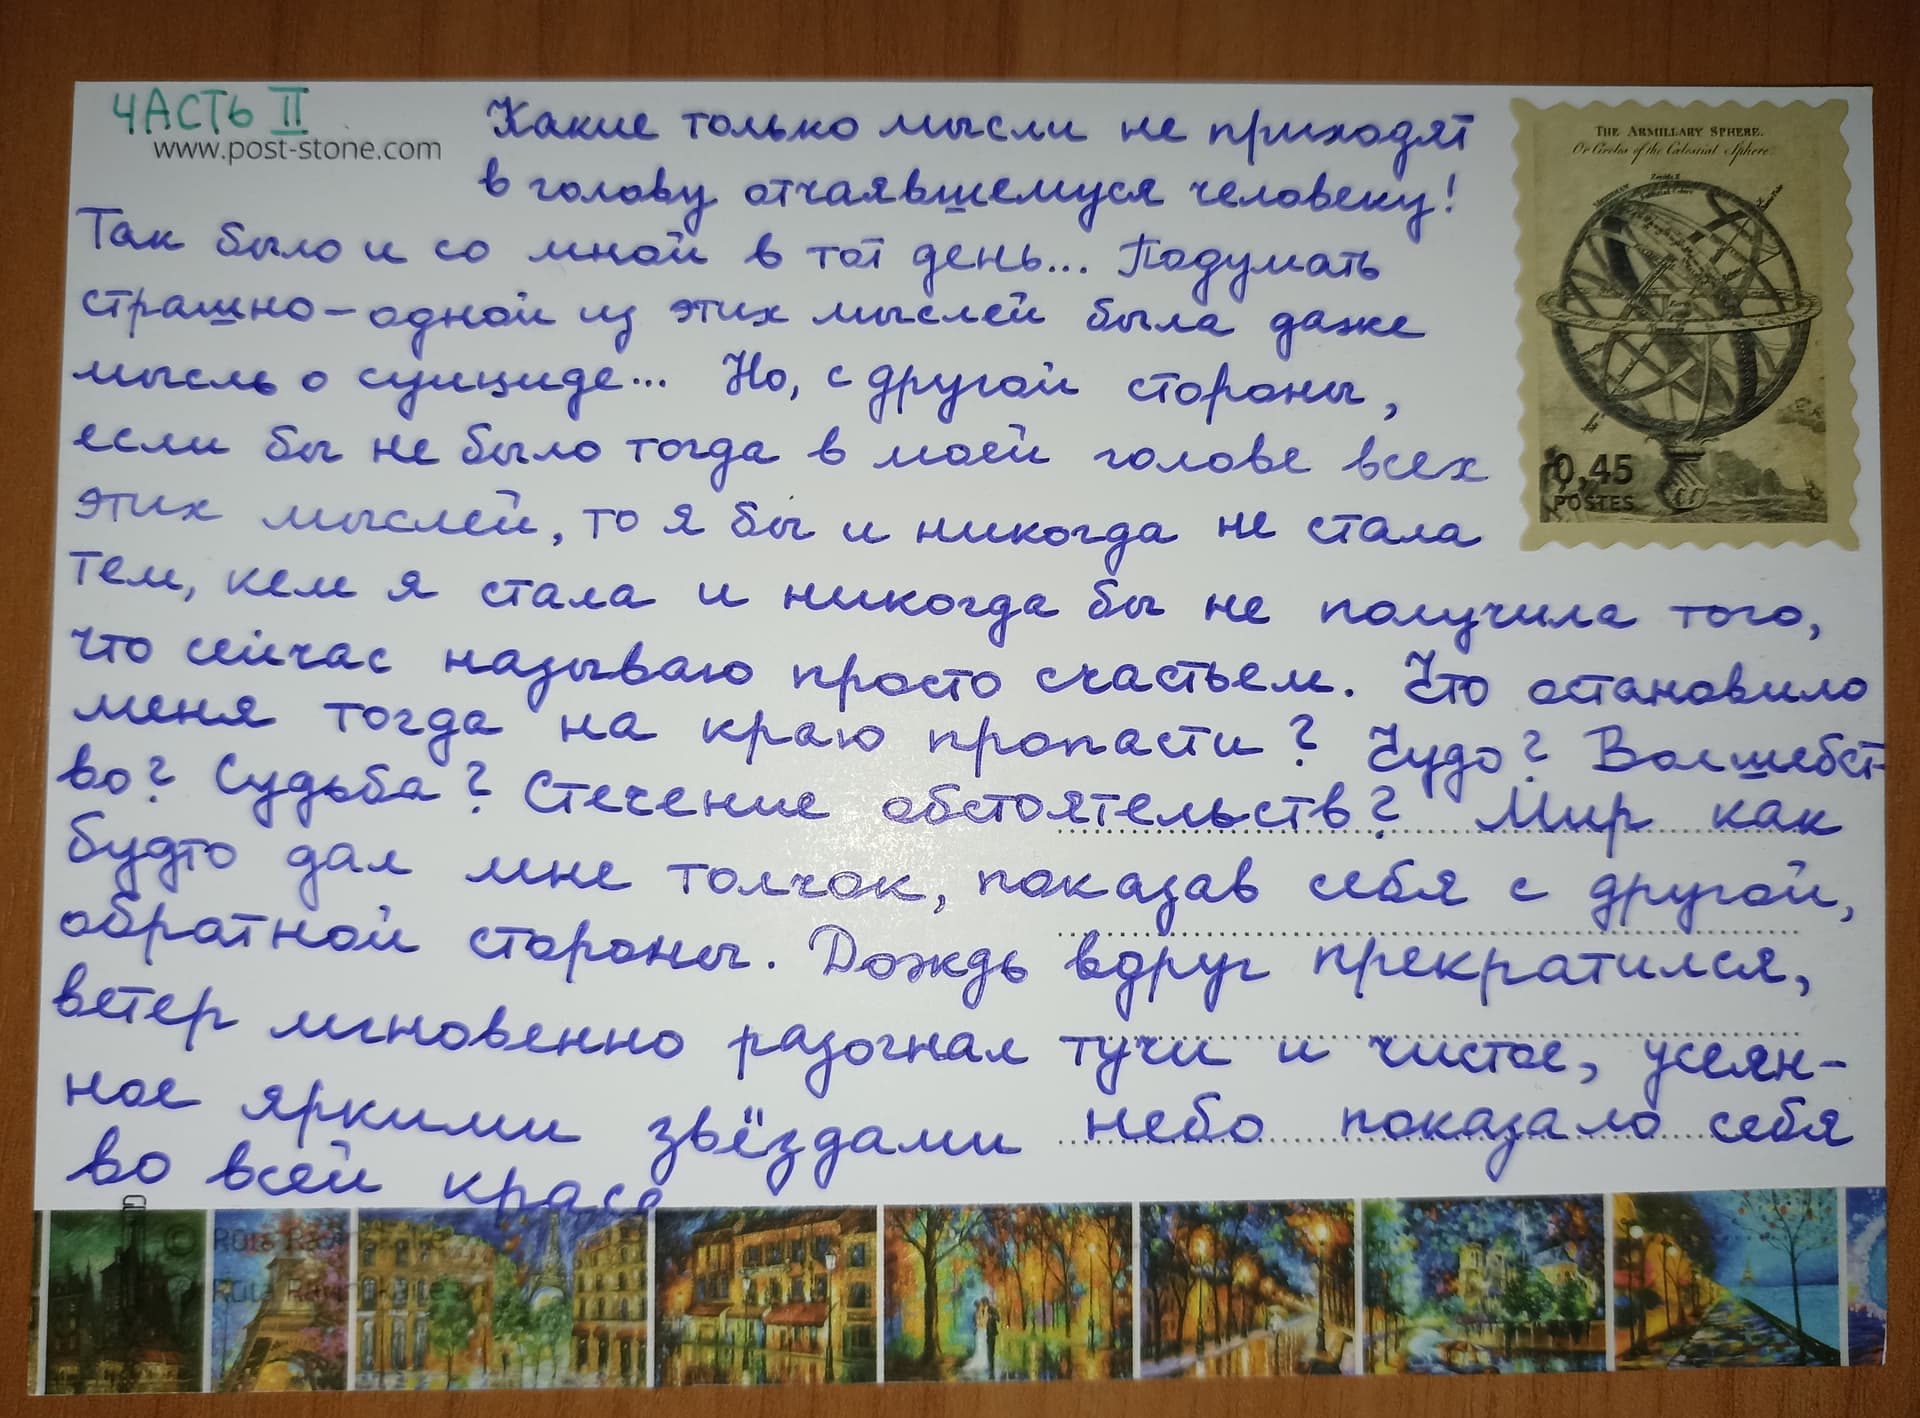 ЧАСТЬ II
www.post-stone.com
Какие только мысли не приходят
в голову отчаявшемуся человеку!
Так было и со мной в тот день... Подумать
страшно – одной из этих мыслей была даже
мысль о суициде... Но, с другой стороны,
если бы не было тогда в моей голове всех
этих мыслей, то я бы и никогда не стала
тем, кем я стала и никогда бы не получила того,
что сейчас называю просто счастьем. Что остановило
меня тогда на краю пропасти? Чудо? Волшебст-
во? Судьба? Стечение обстоятельств? Мир как
будто дал мне толчок, показав себя с другой,
обратной стороны. Дождь вдруг прекратился,
ветер мгновенно разогнал тучи и чистое, усеян-
ное яркими звёздами небо показало себя
во всей красе
THE ARMILLARY SPHERE.
Or Circles of the Celestial Sphere.
0,45
POSTES